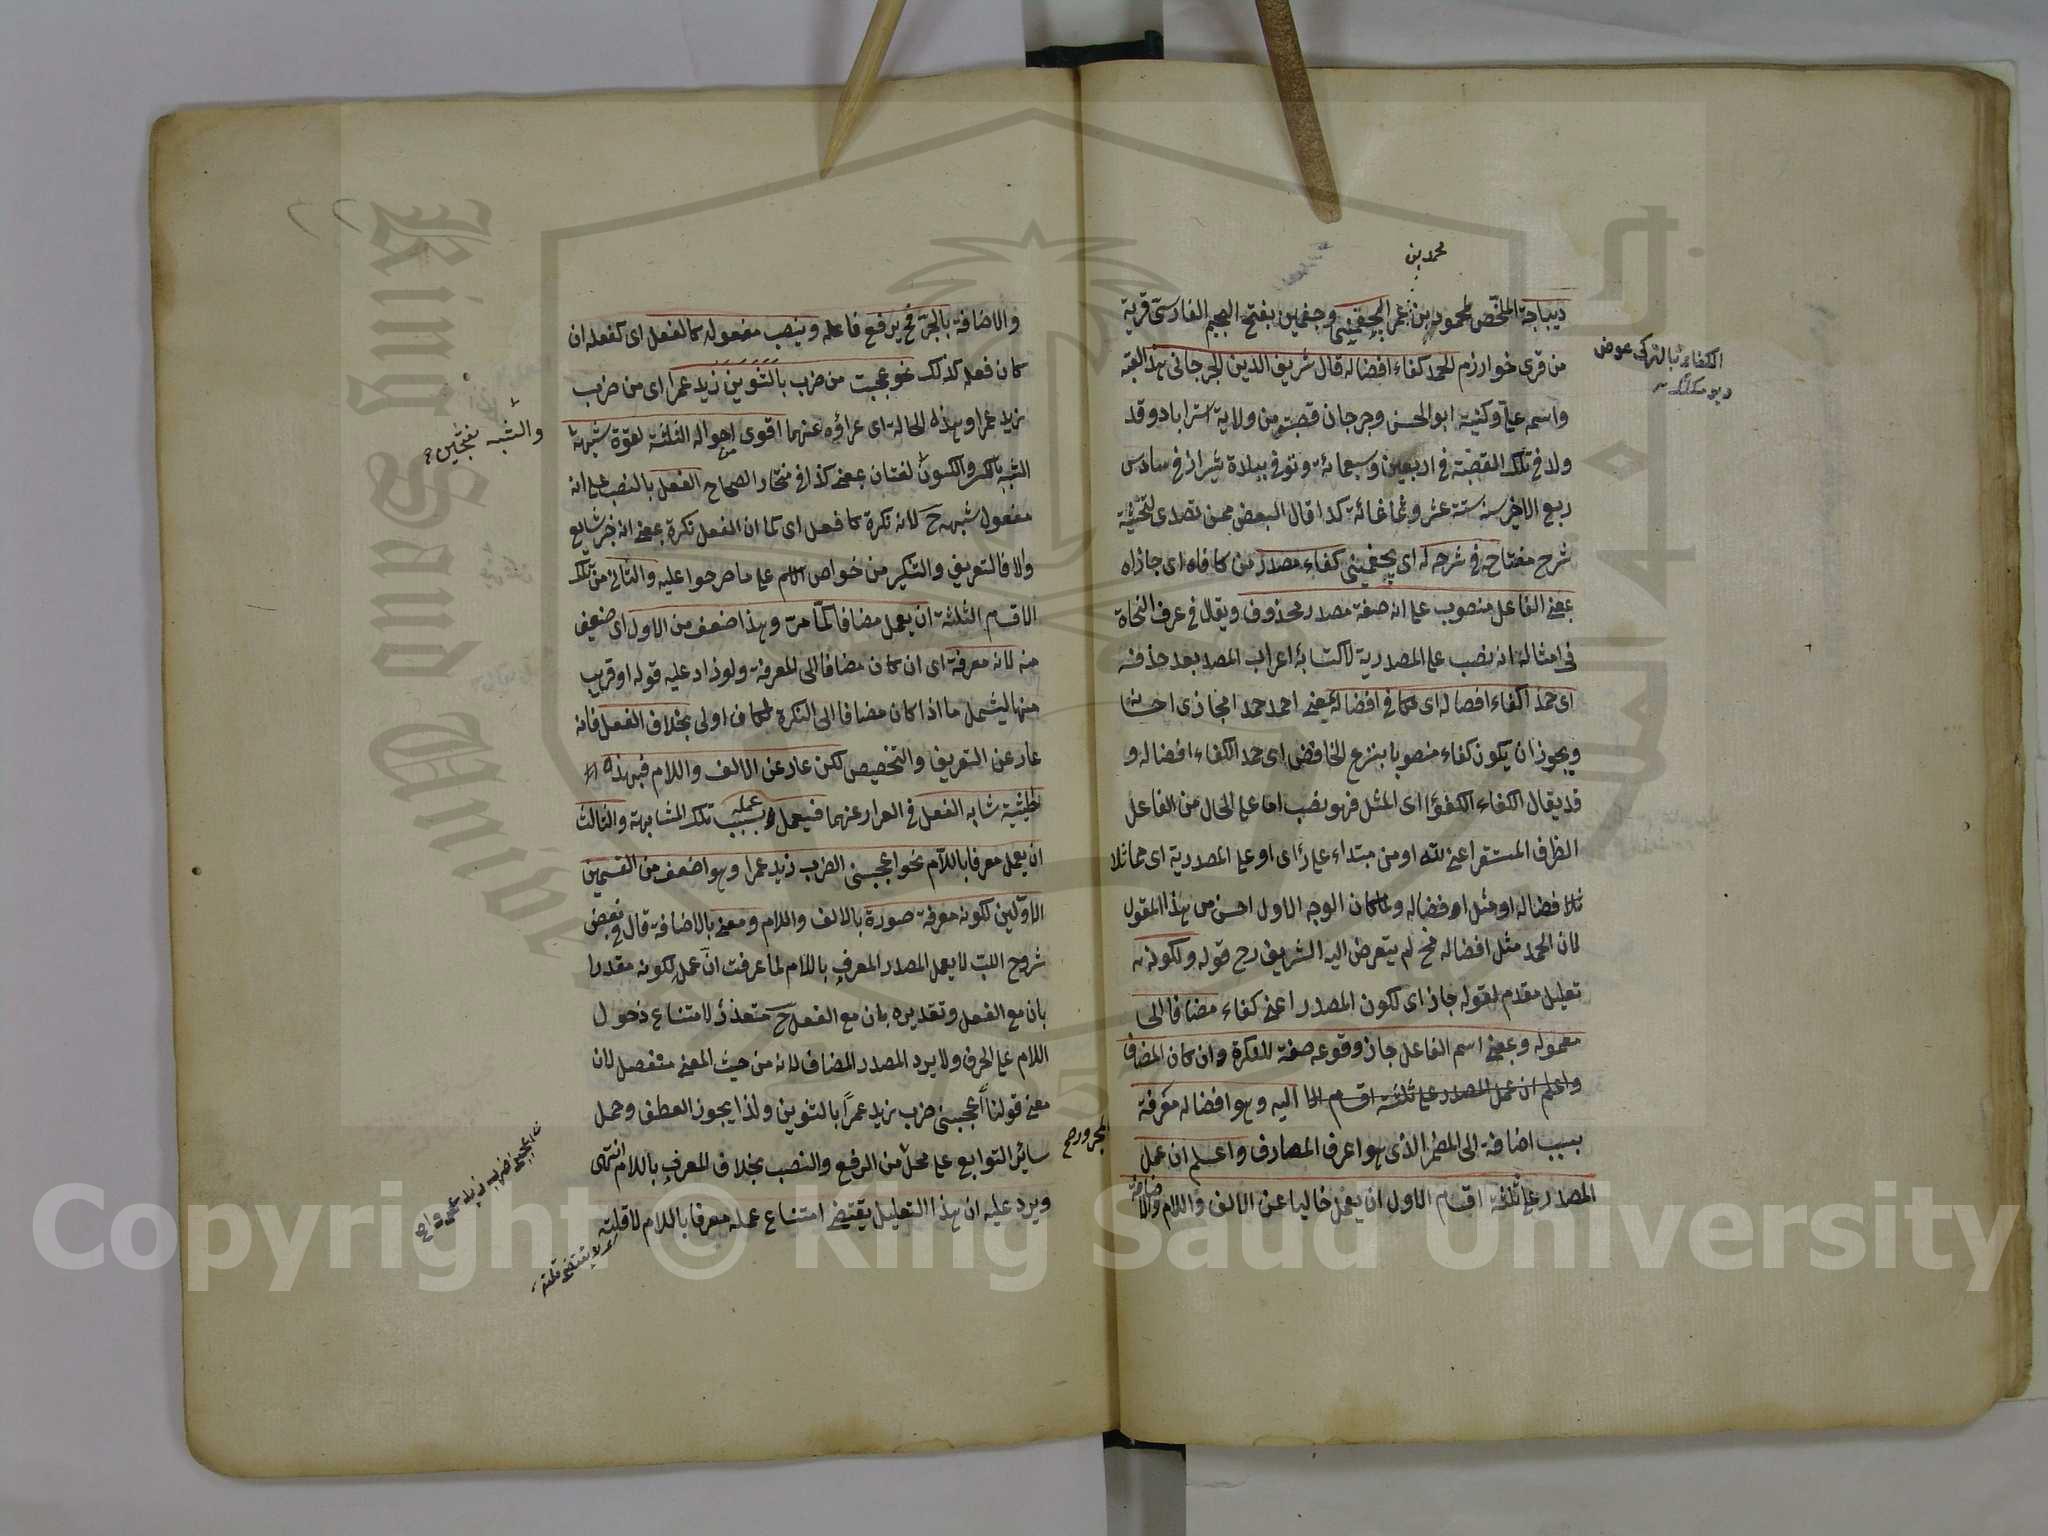 محمد بن
ديباجة الملخص لمحمود بن عمر الجغميني وجغمين بفتح الجيم الفارسي قرية
من قرى خوارزم الحمد كفاء افضاله قال شريف الدين الجرجاني هذا لقبه
واسمه علي وكنيته ابو الحسن وجرجان قصبة من ولاية استراباد وقد
ولد في تلك القصبة في اربعين وسبعمائة وتوفي ببلدة شيراز في سادس
ربيع الاخر سنة ستة عشر وثمانمائة كذا قال البعض ممن تصدى لتحشية
شرح مفتاحه في شرحه له اى للجغميني كفاء مصدر من كافاه اى جازاه
بمعنى الفاعل منصوب على انه صفة مصدر محذوف ويقال في عرف النحاة
في امثاله انه نصب على المصدرية لاكتسابه اعراب المصدر بعد حذفه
اى حمدا كفاء افضاله اى مكافى افضاله يعنى احمد حمدا مجازى احسانه
ويجوز ان يكون كفاء منصوبا بنزع الخافض اى حمد الكفاء افضاله و
قد يقال الكفاء الكفؤ اى المثل فهو نصب اما على الحال من الفاعل
الظرف المستقر اعنى لله او من مبتداء على رأى او على المصدرية اى مماثلا
لافضاله او مثل افضاله ولما كان الوجه الاول احسن من هذا المقول
لان الحمد مثل افضاله مح لم يتعرض اليه الشريف رح قوله ولكونه
تعليل مقدم لقوله جاز اى لكون المصدر اعنى كفاء مضافا الى
معموله وبمعنى اسم الفاعل جاز وقوعه صفة للنكرة وان كان المضاف
واعلم ان عمل المصدر على ثلثة اقسام اليه وهو افضاله معرفة
بسبب اضافة الى المضمر الذى هو اعرف المعارف واعلم ان عمل
المصدر على ثلثة اقسام الاول ان يعمل خاليا عن الالف واللام والاضافة
الكفاء بالتركى عوض
والاضافة بالجر فح يرفع فاعله وينصب مفعوله كالفعل اى كفعله ان
كان فعله كذلك نحو عجبت من ضرب بالتنوين زيد عمرا اى من ضرب
زيد عمرا وهذه الحالة اى عراؤه عنهما اقوى احواله الثلثة لقوة شبهه
الشبه بالكسر والسكون لغتان بمعنى كذا في مختار الصحاح الفعل بالنصب على انه
مفعول شبهه ح لانه نكرة كالفعل اى كما ان الفعل نكرة بمعنى انه خبر شايع
والا فالتعريف والتنكير من خواص الاسم على ما صرحوا عليه والثاني من تلك
الاقسام الثلثة ان يعمل مضافا كما مر وهذا اضعف من الاول اى ضعيف
منه لانه معرفة اى ان كان مضافا الى المعرفة ولو زاد عليه قوله او قريب
منها ليشمل ما اذا كان مضافا الى النكرة لكان اولى بخلاف الفعل فانه
عار عن التعريف والتخصيص لكن عار عن الالف واللام فبهذه
الحيثية شابه الفعل في العراء عنهما فيعمل عمله بسبب تلك المشابهة والثالث
ان يعمل معرفا باللام نحو اعجبنى الضرب زيد عمرا وهو اضعف من القسمين
الاولين لكونه معرفة صورة بالالف واللام ومعنى بالاضافة قال في بعض
شروح اللب لا يعمل المصدر المعرف باللام لما عرفت ان عمله لكونه مقدرا
بان مع الفعل وتقديره بان مع الفعل ح متعذر لامتناع دخول
اللام على الحرف ولا يرد المصدر المضاف لانه من حيث المعنى منفصل لان
معنى قولنا اعجبنى ضرب زيد عمرا بالتنوين ولذا يجوز العطف وحمل
سائر التوابع على محله من الرفع والنصب بخلاف المعرف باللام انتهى
ويرد عليه ان هذا التعليل يقتضى امتناع عمله معرفا باللام لا قلته
والشبه بفتحتين
المجرور صح
لا يقتضى قلته